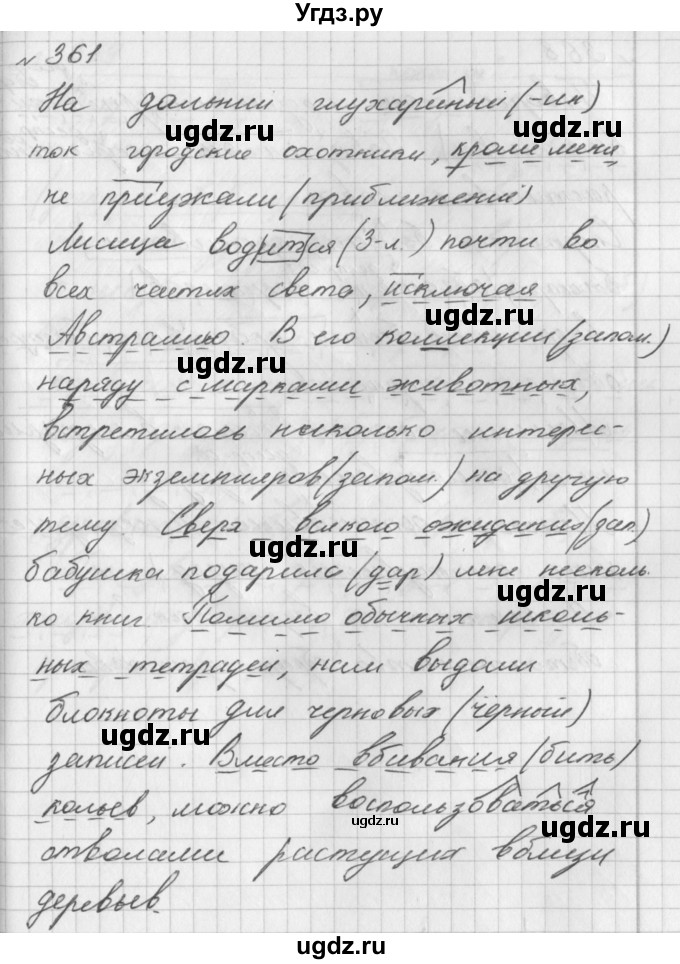 УгДз.ру
№ 361
На дальний глухариный (-ин)
ток городские охотники, кроме меня,
не приезжали (приближений)
Лисица водится (3-л.) почти во
всех частях света, исключая
Австралию. В его коллекции (запом.)
наряду с марками животных,
встретилось несколько интерес-
ных экземпляров (запом.) на другую
тему Сверх всякого ожидания (зап.)
бабушка подарила (дар) мне несколь-
ко книг Помимо обычных школь-
ных тетрадей, нам выдали
блокноты для черновых (чёрный)
записей. Вместо вбивания (бить)
кольев, можно воспользоваться
стволами растущих вблизи
деревьев.
ugdz.ru
ugdz.ru
ugdz.ru
ugdz.ru
ugdz.ru
ugdz.ru
ugdz.ru
ugdz.ru
ugdz.ru
ugdz.ru
ugdz.ru
ugdz.ru
ugdz.ru
ugdz.ru